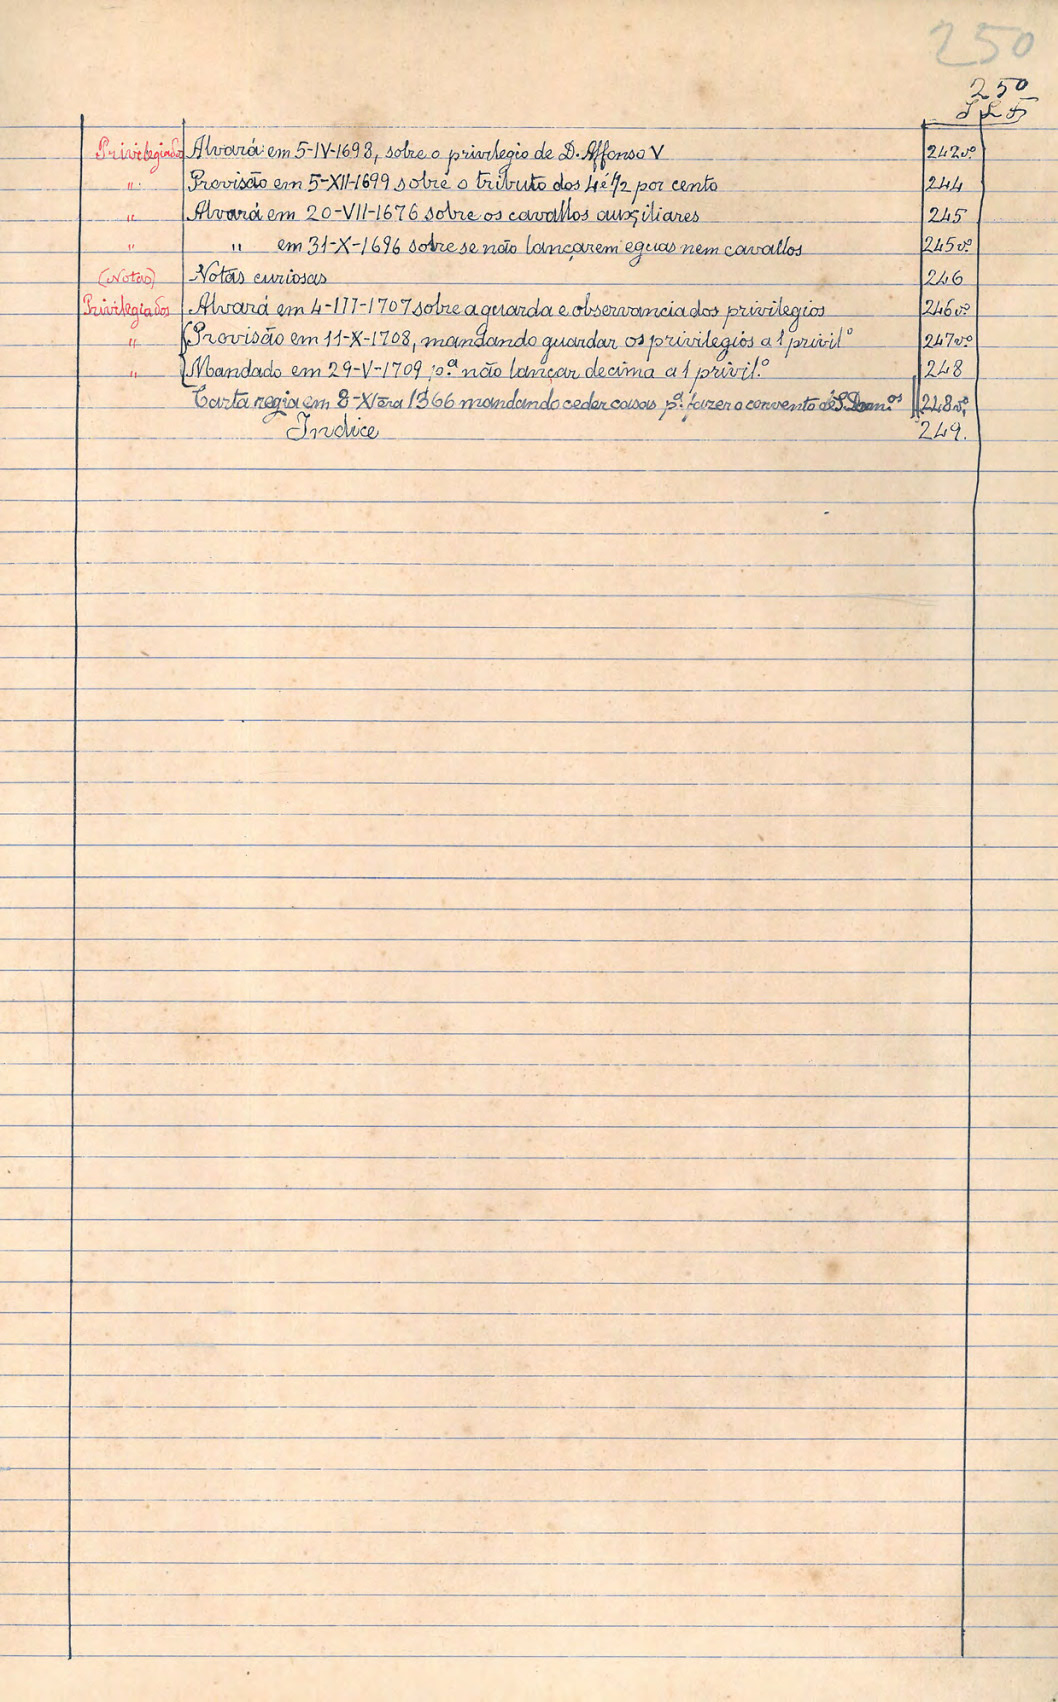 250
250
Privilegiados Alvará em 5-IV-1698, sobre o privilegio de D. Affonso V 242vº
" Provisão em 5-XII-1699 sobre o tributo dos 4 é 1/2 por cento 244
" Alvará em 20-VII-1676 sobre os cavallos auxiliares 245
" " em 31-X-1696 sobre se não lançarem eguas nem cavallos 245vº
(Notas) Notas curiosas 246
Privilegiados Alvará em 4-III-1707 sobre a guarda e observancia dos privilegios 246vº
" Provisão em 11-X-1708, mandando guardar os privilegios a 1 privilº 247vº
" Mandado em 29-V-1709 pª não lançar decima a 1 privil.º 248
Carta regia em 8-XI era 1366 mandando ceder casas pª. fazer o convento de S. Dom.ºs 248vº
Indice 249.